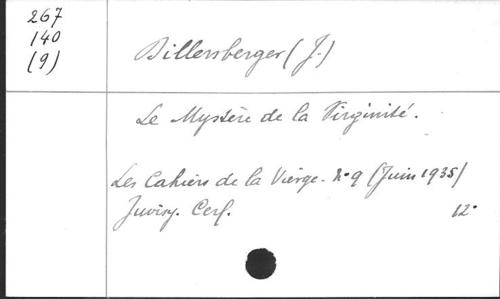 267
140
(9)
Billersberger (J.)
Le Mystère de la Virginité.
Les Cahiers de la Vierge. N°9 (Juin 1935)
Juvisy. Cerf. 12°